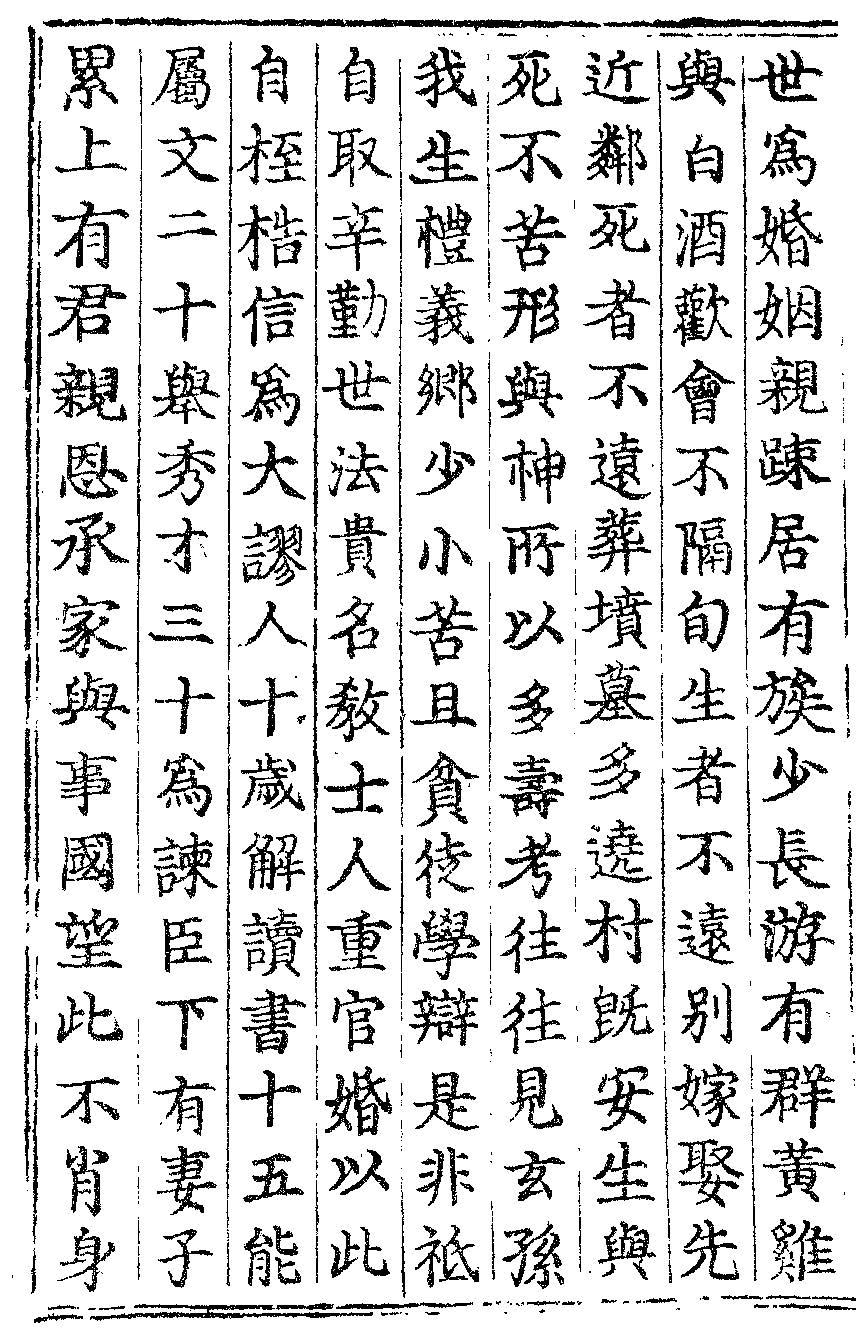 世為婚姻親踈居有族少長游有群黃雞
與白酒歡會不隔旬生者不遠別嫁娶先
近鄰死者不遠葬墳墓多遶村既安生與
死不苦形與神所以多壽考往往見玄孫
我生禮義鄉少小苦且貧徒學辯是非祗
自取辛勤世法貴名教士人重官婚以此
自桎梏信為大謬人十歲解讀書十五能
屬文二十舉秀才三十為諫臣下有妻子
累上有君親恩承家與事國望此不肖身